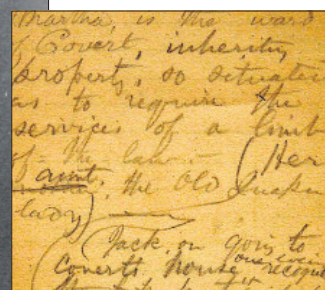 Martha, is the ward
of Covert, inherits
property, so situated
as to require the
services of a limb
of the law.— (Her
aunt, the Old Quaker
lady)
(Jack, on going to
Covert's house, one even